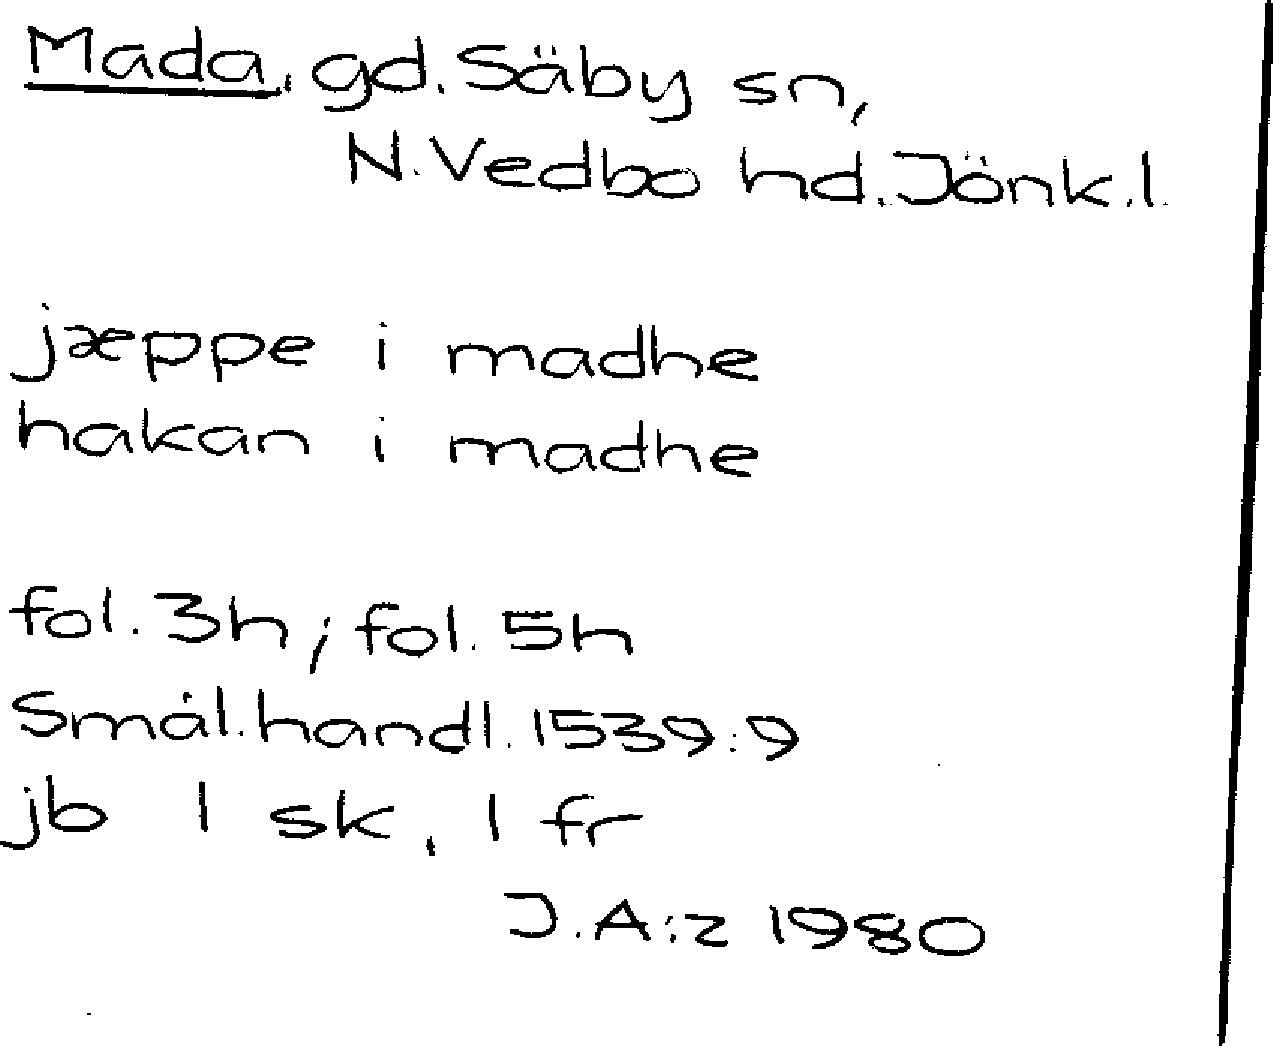 Mada, gd. Säby sn,
N. Vedbo hd. Jönk. l.
jæppe i madhe
hakan i madhe
fol. 3h; fol. 5h
Smål. handl. 1539:9
jb 1 sk, 1 fr
J. A:z 1980